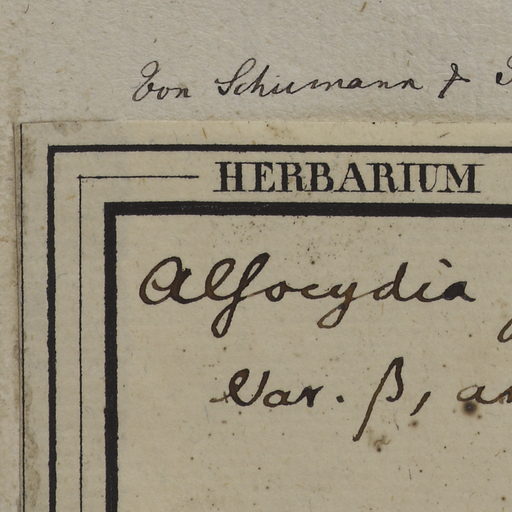 Von Schumann &
HERBARIUM
Alsocydia
Var. β, an